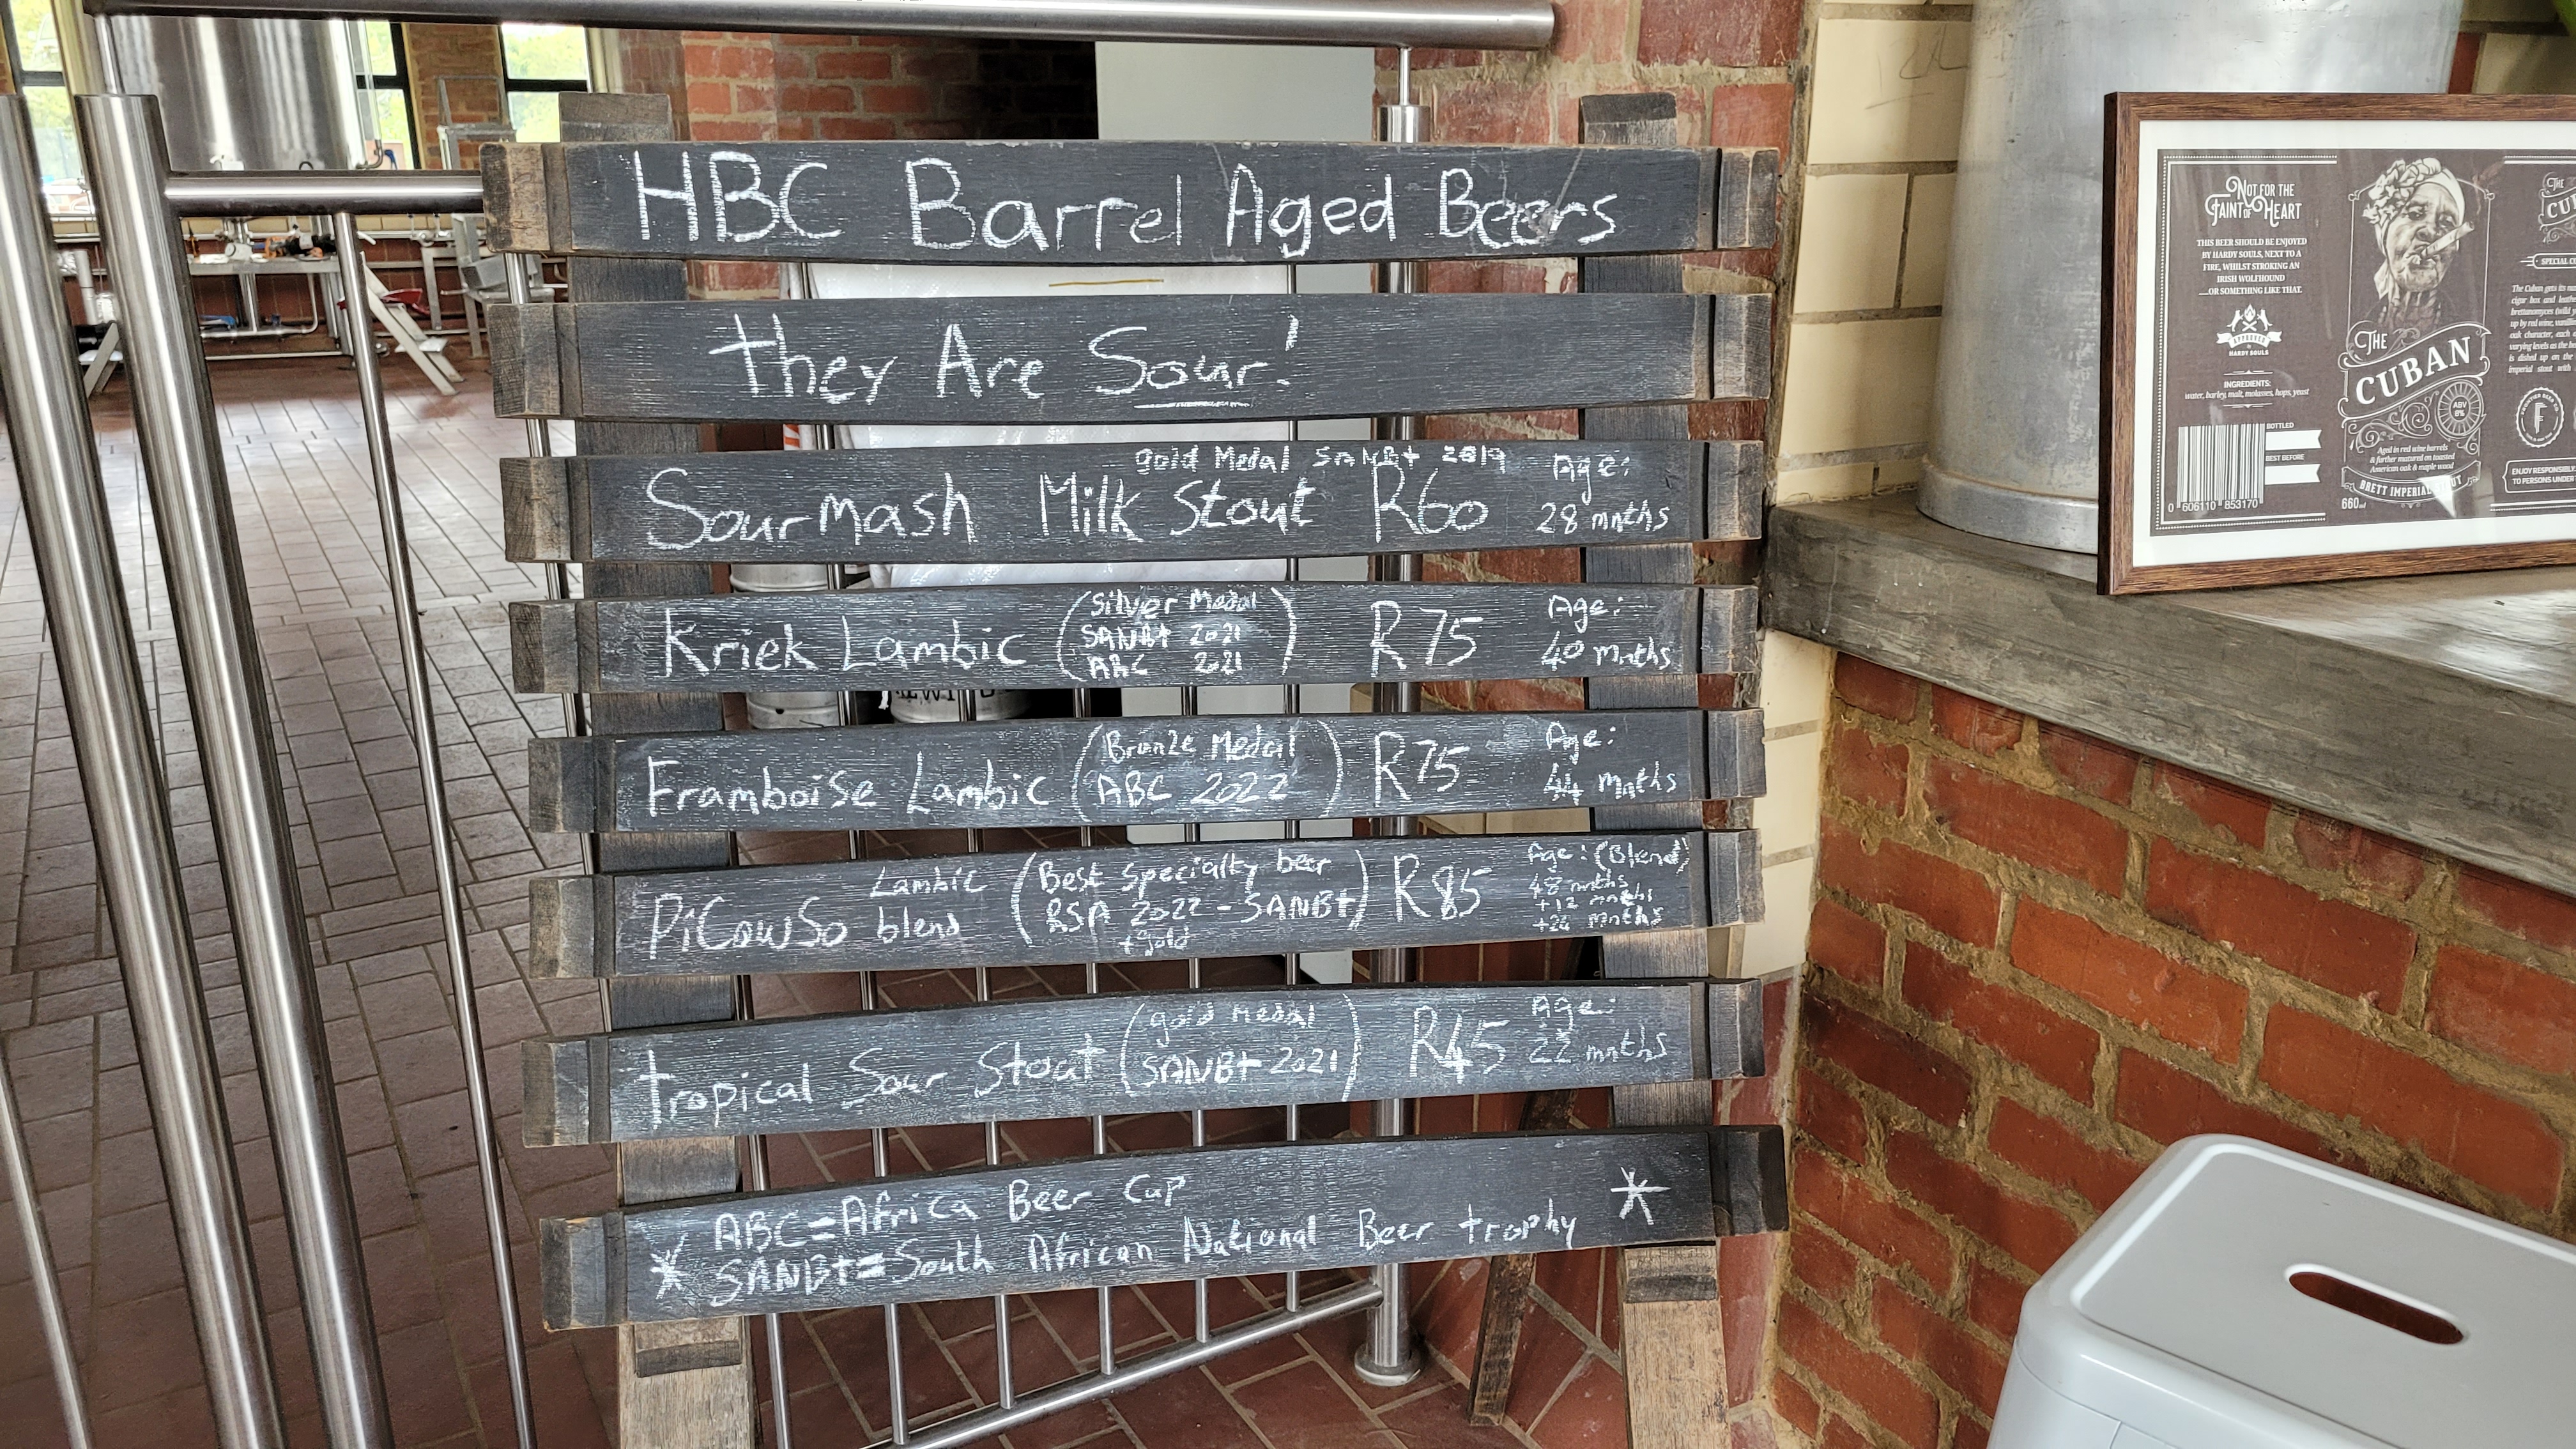 HBC Barrel Aged Beers
they Are Sour!
gold Medal SANBt 2019
Sourmash Milk Stout R60
Age:
28 mnths
Kriek Lambic
(Silver Medal
SANBt 2021
ABC 2021)
R75
Age:
40 mnths
Framboise Lambic
(Bronze Medal
ABC 2022)
R75
Age:
44 mnths
PiCowSo
Lambic
blend
(Best Specialty beer
RSA 2022 - SANBt)
+ gold
R85
Age: (Blend)
48 mnths
+12 mnths
+24 mnths
tropical Sour Stout
(gold Medal
SANBt 2021)
R45
Age:
22 mnths
ABC = Africa Beer Cup
* SANBt = South African National Beer trophy *
NOT FOR THE
FAINT OF HEART
THIS BEER SHOULD BE ENJOYED
BY HARDY SOULS, NEXT TO A
FIRE, WHILST STROKING AN
IRISH WOLFHOUND
....OR SOMETHING LIKE THAT.
APPROVED
by
HARDY SOULS
INGREDIENTS:
water, barley, malt, molasses, hops, yeast
BOTTLED
BEST BEFORE
0 606110 853170
THE
CUBAN
ABV
8%
Aged in red wine barrels
& further matured on toasted
American oak & maple wood
BRETT IMPERIAL
660ml
THE
CU
SPECIAL
The Cuban gets its
cigar box and
brettanomyces
up by red wine,
oak character, each
varying levels as the
is dished up on the
imperial stout with
ENJOY RESPONSIBLY
TO PERSONS UNDER